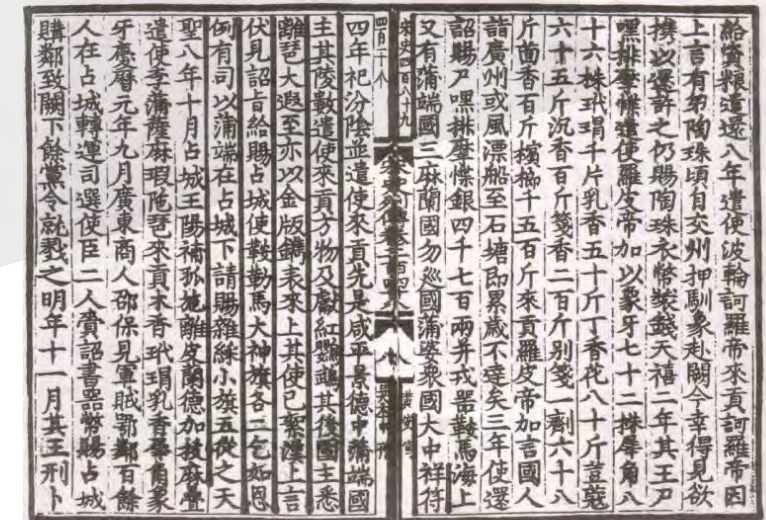 給資糧遣還八年遣使波輪訶羅帝來貢訶羅帝因
上言有弟陶珠頃自交州押馴象赴闕今幸得見欲
攜以還許之仍賜陶珠衣幣裝錢天禧二年其王尸
嘿排摩惵遣使羅皮帝加以象牙七十二株犀角八
十六株玳瑁千片乳香五十斤丁香花八十斤荳蔻
六十五斤沉香百斤箋香二百斤別箋一劑六十八
斤茴香百斤檳榔千五百斤來貢羅皮帝加言國人
詣廣州或風漂船至石塘即累歲不達矣三年使還
詔賜尸嘿排摩惵銀四千七百兩并戎器鞍馬海上
又有蒲端國三麻蘭國勿巡國蒲婆衆國大中祥符
宋史四百八十九
四百二十个
四年祀汾陰並遣使來貢先是咸平景德中蒲端國
主其陵數遣使來貢方物及獻紅鸚鵡其後國主悉
離琶大遐至亦以金版鐫表來上其使已絮漢上言
伏見詔旨給賜占城使鞍勒馬大神旗各二乞如恩
例有司以蒲端在占城下請賜雜綵小旗五從之天
聖八年十月占城王陽補孤施離皮蘭德加拔麻疊
遣使李蒲薩麻瑕陁琶來貢木香玳瑁乳香犀角象
牙慶曆元年九月廣東商人邵保見軍賊鄂鄰百餘
人在占城轉運司選使臣二人齎詔書器幣賜占城
購鄰致闕下餘黨令就戮之明年十一月其王刑卜